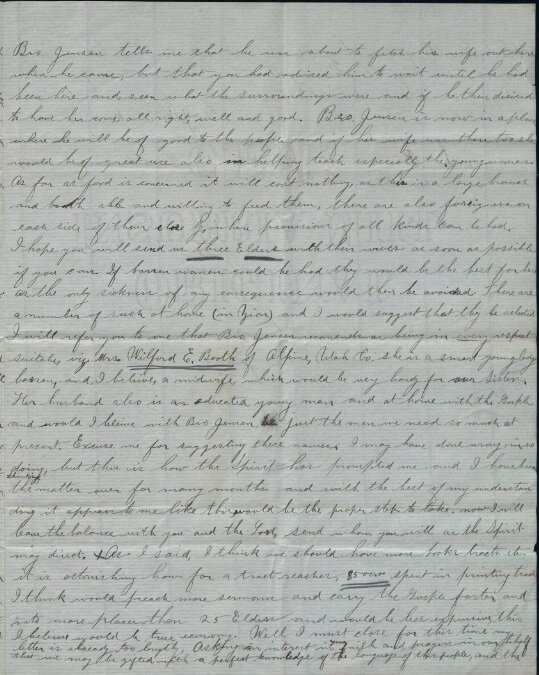 Bro. Jensen tells me that he was about to fetch his wife out here
when he came, but that you had adviced him to wait until he had
been here and seen what the surroundings were and if he then disired
to have her come, all right, well and good. Bro. Jensen is now in a place
where he will be of good to the people and if his wife was there too she
would be of great use also in helping teach especially the young women
As far as food is concerned it will cost nothing as this is a large branch
and both able and willing to feed them, there are also foreigners on
each side of them where provisions of all kinds can be had.
I hope you will send us three Elders with their wives as soon as possible
if you can. If barren women could be had they would be the best for here
as the only sickness of any consequence would then be avoided There are
a number of such at home (in Zion) and I would suggest that they be selected
I will refer you to one that Bro. Jensen recomends as being in every respect
suitable, viz, Mrs. Wilford E. Booth of Alpine, Utah Co. she is a smart young lady
barren, and, I believe, a midwife which would be very handy for our Sisters.
Her husband also is an educated young man and at home with the Gospel
and would I beleive with Bro Jensen be just the men we need so much at
present. Excuse me for suggesting these names, I may have done wrong in so
doing, but this is how the Spirit has prompted me and I have been
thinking
the matter over for many months and with the best of my understan
ding it appears to me like this would be the proper step to take. now I will
leave the balance with you and the Lord, send whom you will as the Spirit
may direct. As I said, I think we should have more books tracts etc.
it is astonishing how far a tract reaches, spent in printing tracts
I think would preach more sermons and carry the Gospel faster and
into more places than 25 Elders and would be less expensive, this
I believe would be true economy. Well I must close for this time my
letter is already too lengthy, Asking an interest in faith and prayers in our behalf
that we may be gifted with a perfect knowledge of the language of this people, and the